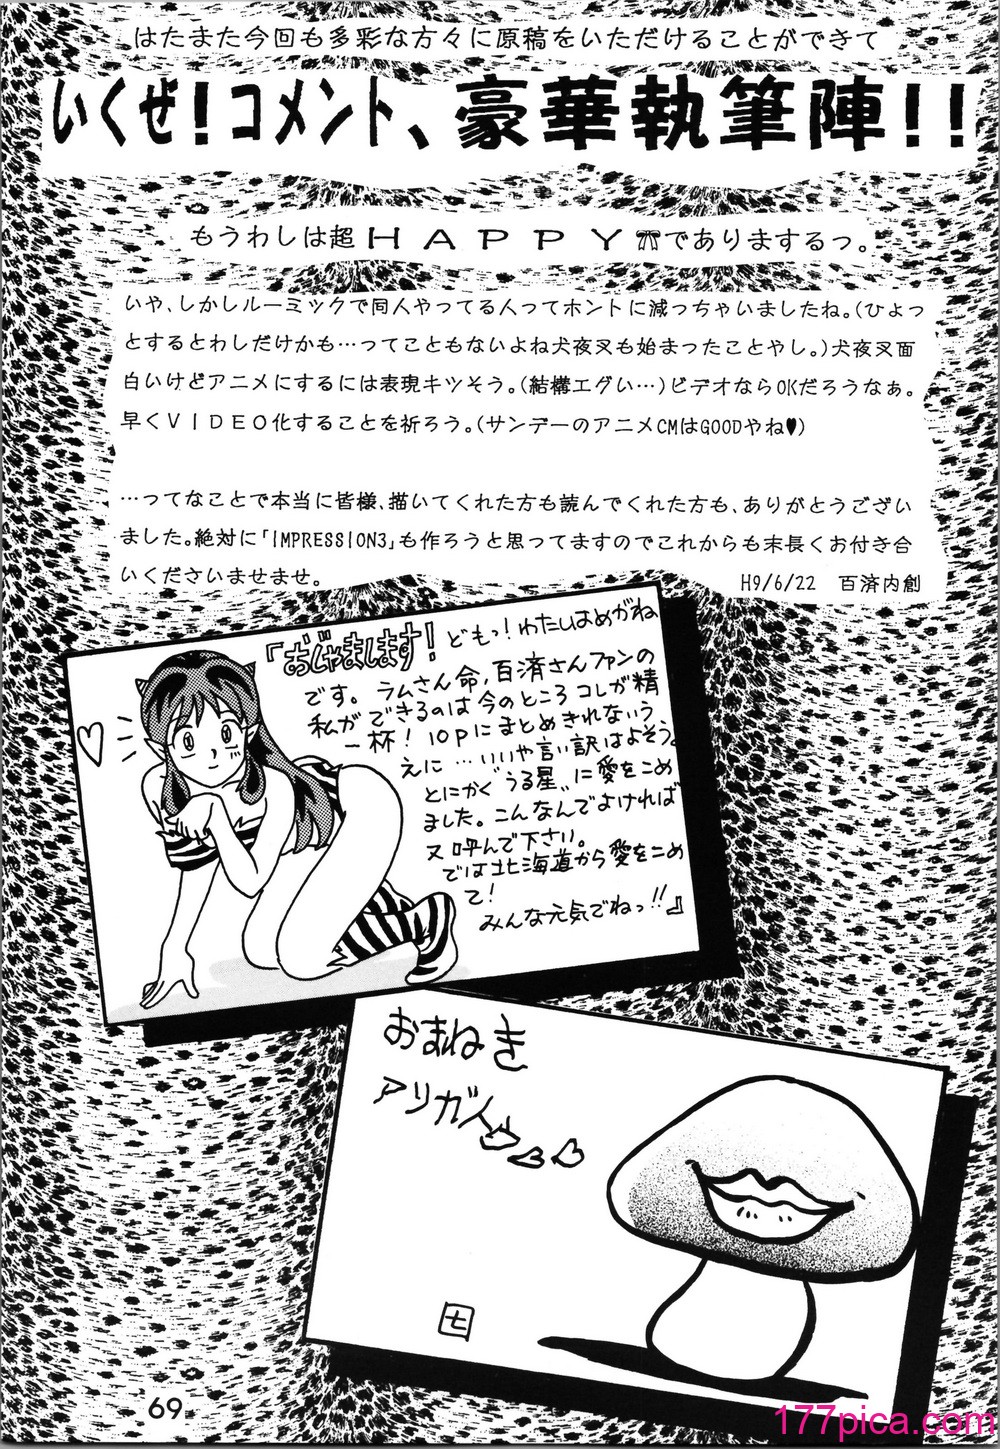 はたまた今回も多彩な方々に原稿をいただけることができて
いくぜ!コメント、豪華執筆陣!!
もうわしは超HAPPYでありまするっ。
いや、しかしルーミックで同人やってる人ってホントに減っちゃいましたね。(ひょっ
とするとわしだけかも…ってこともないよね犬夜叉も始まったことやし。)犬夜叉面
白いけどアニメにするには表現キツそう。(結構エグい…)ビデオならOKだろうなぁ。
早くVIDEO化することを祈ろう。(サンデーのアニメCMはGOODやね♥)
…ってなことで本当に皆様、描いてくれた方も読んでくれた方も、ありがとうござい
ました。絶対に「IMPRESSION3」も作ろうと思ってますのでこれからも末長くお付き合
いくださいませませ。
H9/6/22 百済内創
『おじゃまします!どもっ!わたしはめがね
です。ラムさん命,百済さんファンの
私ができるのは今のところコレが精
一杯!10Pにまとめきれないう
えに…いいや言い訳はよそう。
とにかく"うる星〟に愛をこめ
ました。こんなんでよければ
又呼んで下さい。
では北海道から愛をこめ
て!
みんな元気でねっ!!』
おまねき
アリガトウ♡♡
七
69
177pica.com